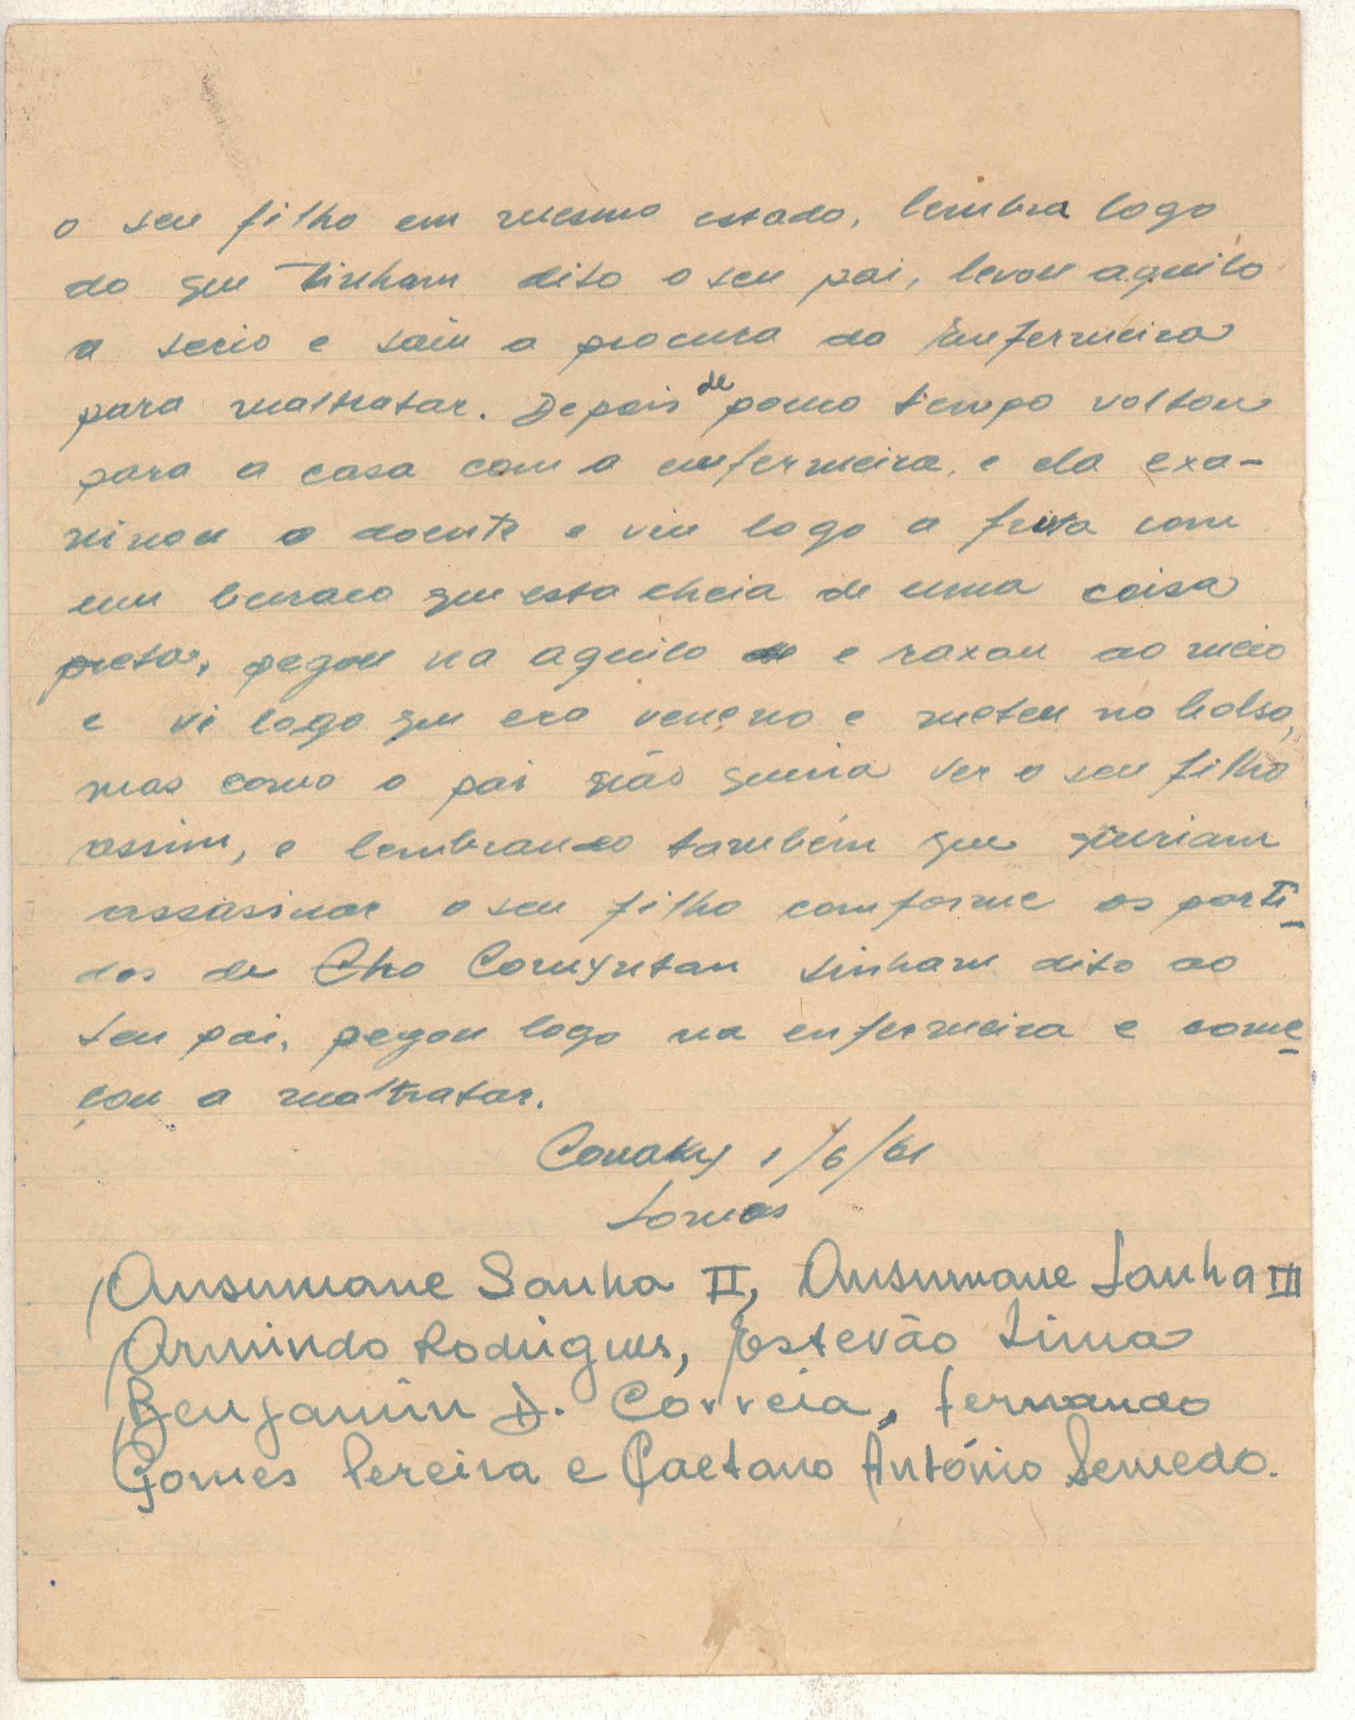 o seu filho em mesmo estado, lembra logo
do que tinham dito o seu pai, levou aquilo
a serio e saiu a procura da Enfermeira
para maltratar. Depois de pouco tempo voltou
para a casa com a enfermeira, e ela exa-
minou o doente e viu logo a fruta com
um buraco que esta cheia de uma coisa
preta, pegou na aquilo e raxou ao meio
e vi logo que era veneno e meteu no bolso,
mas como o pai não queria ver o seu filho
assim, e lembrando também que queriam
assasinar o seu filho comforme os parti-
dos de Cho tinham dito ao
seu pai, pegou logo na enfermeira e come-
çou a maltratar.
Conakry 1/6/61
Somos
Ansumane Sanha II, Ansumane Sanha III
Armindo Rodrigues, Estevão Lima
Benjamim D. Correia, Fernando
Gomes Pereira e Caetano António Semedo.